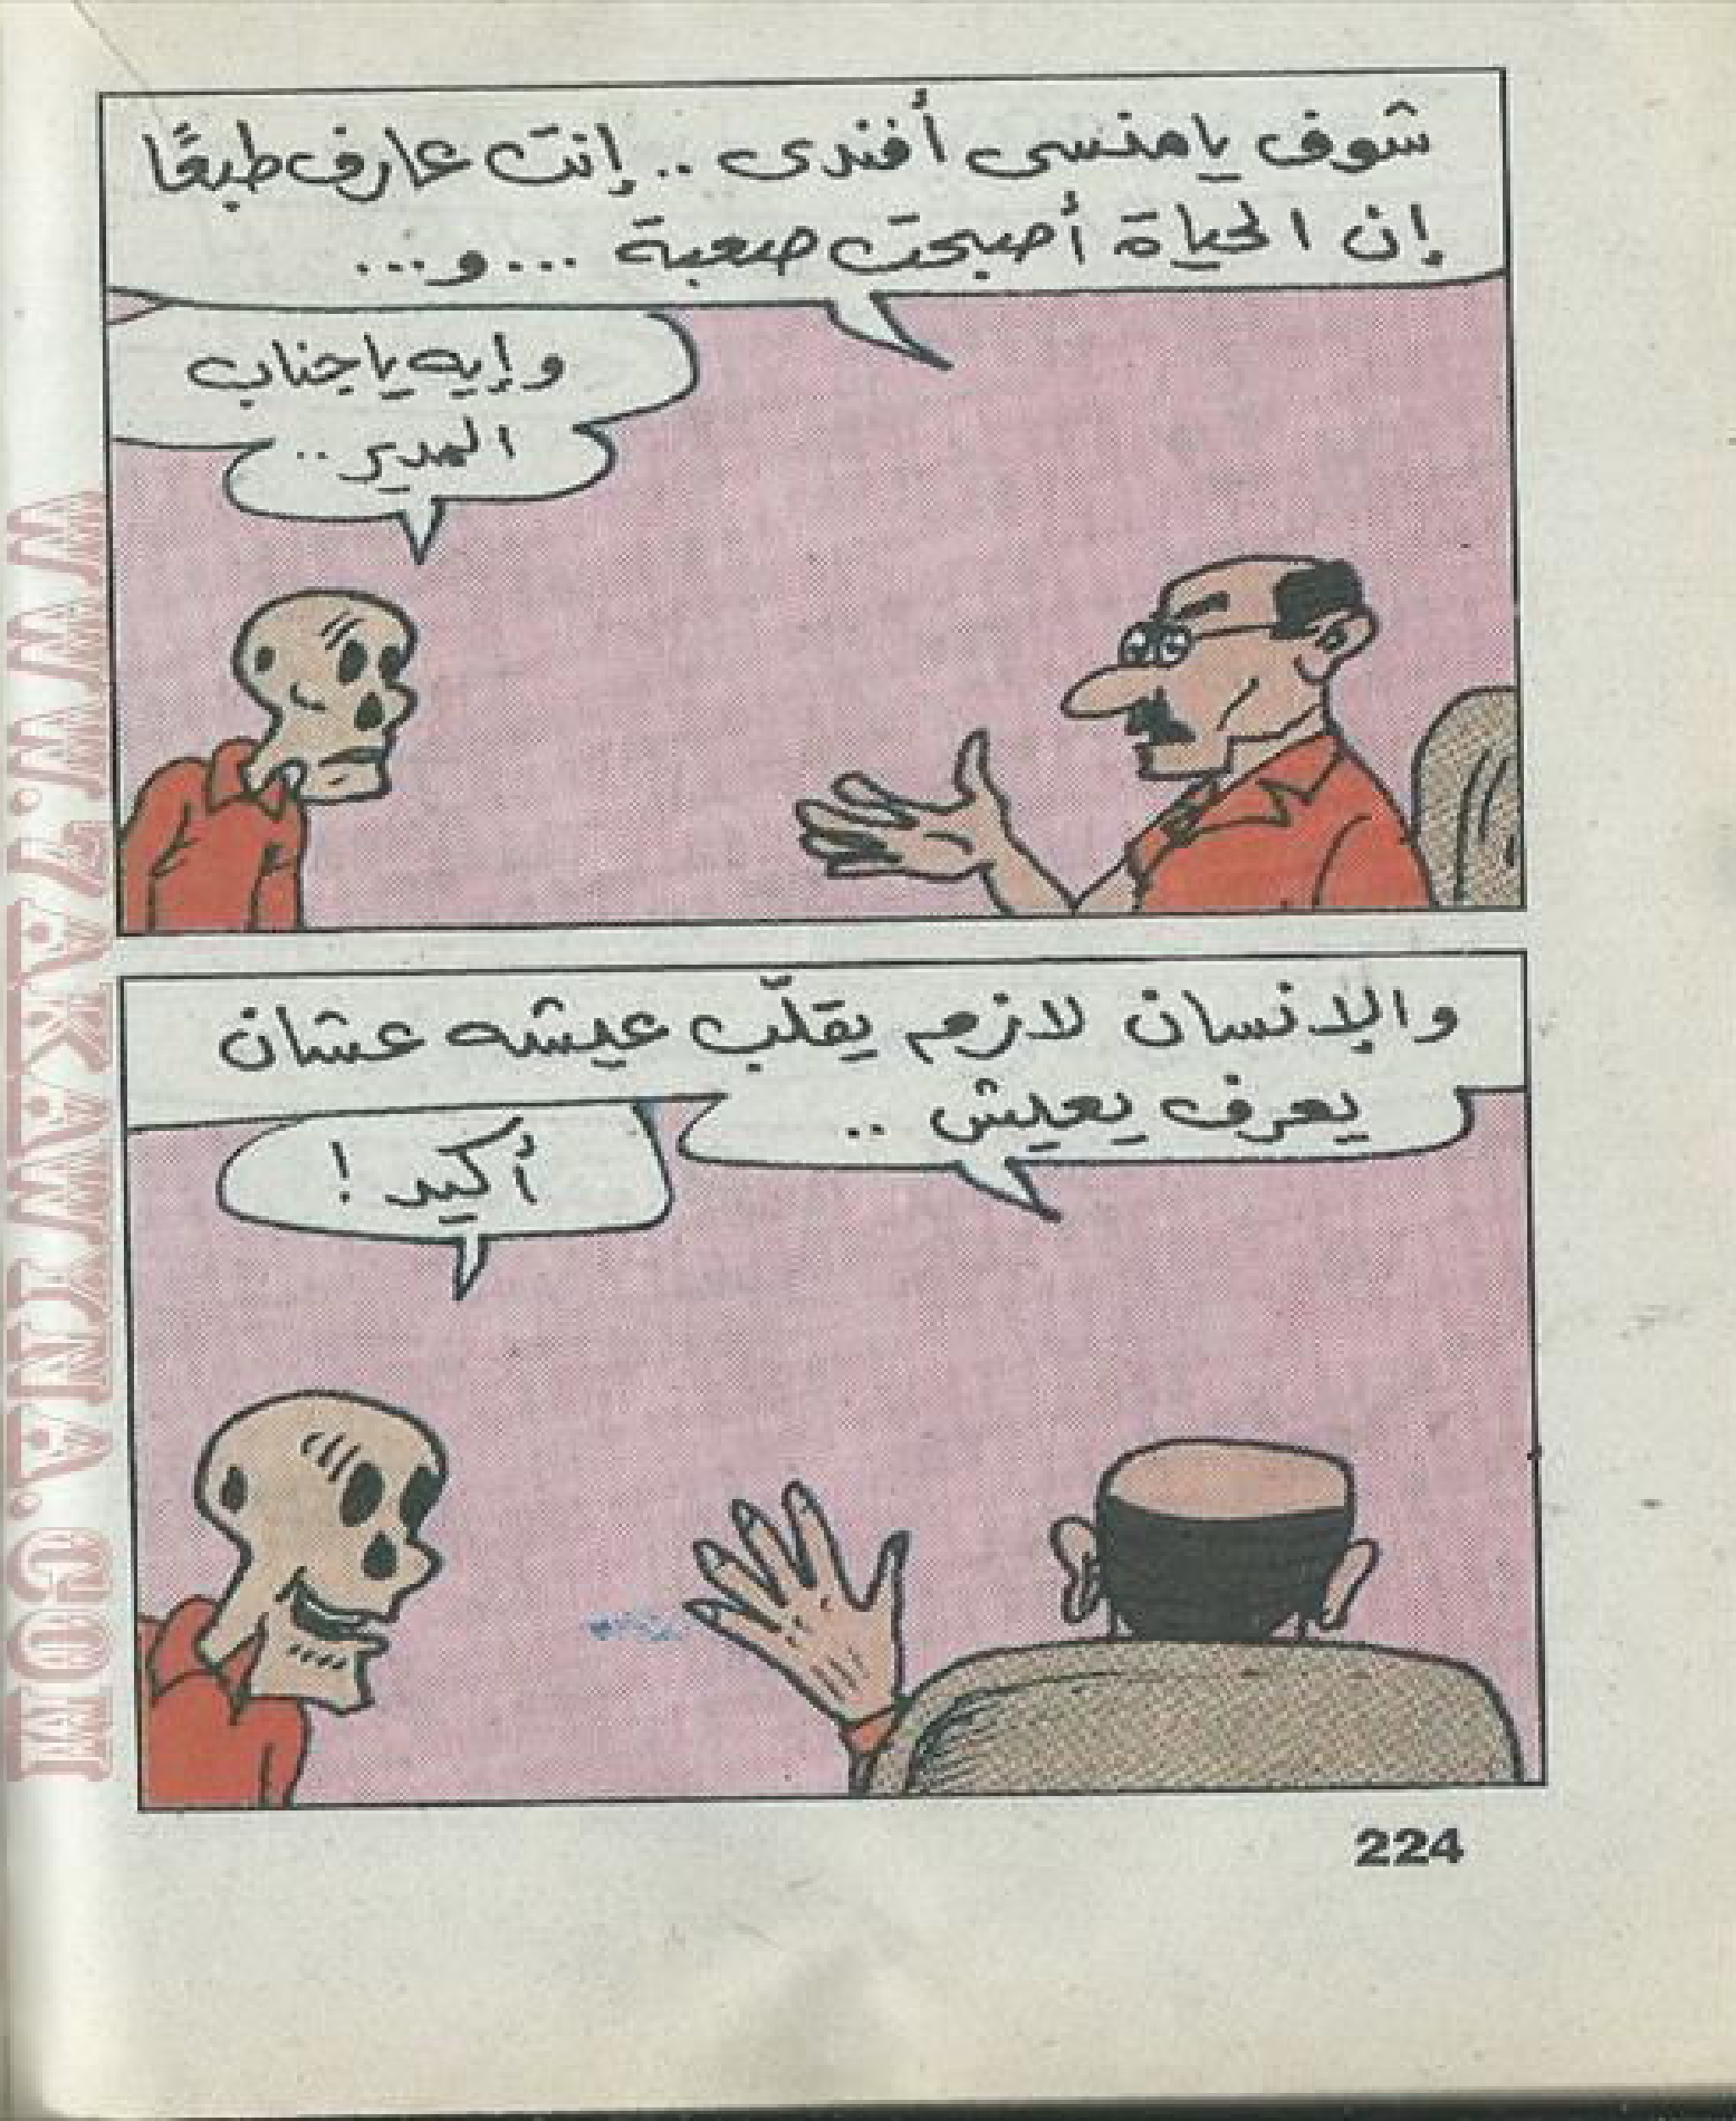 شوف يا منسى أفندى .. إنت عارف طبعًا
إن الحياة أصبحت صعبة ... و...
وإيه يا جناب
المدير ..
والإنسان لازم يقلّب عيشه عشان
يعرف يعيش ..
أكيد !
224
WWW.7AKAWINA.COM